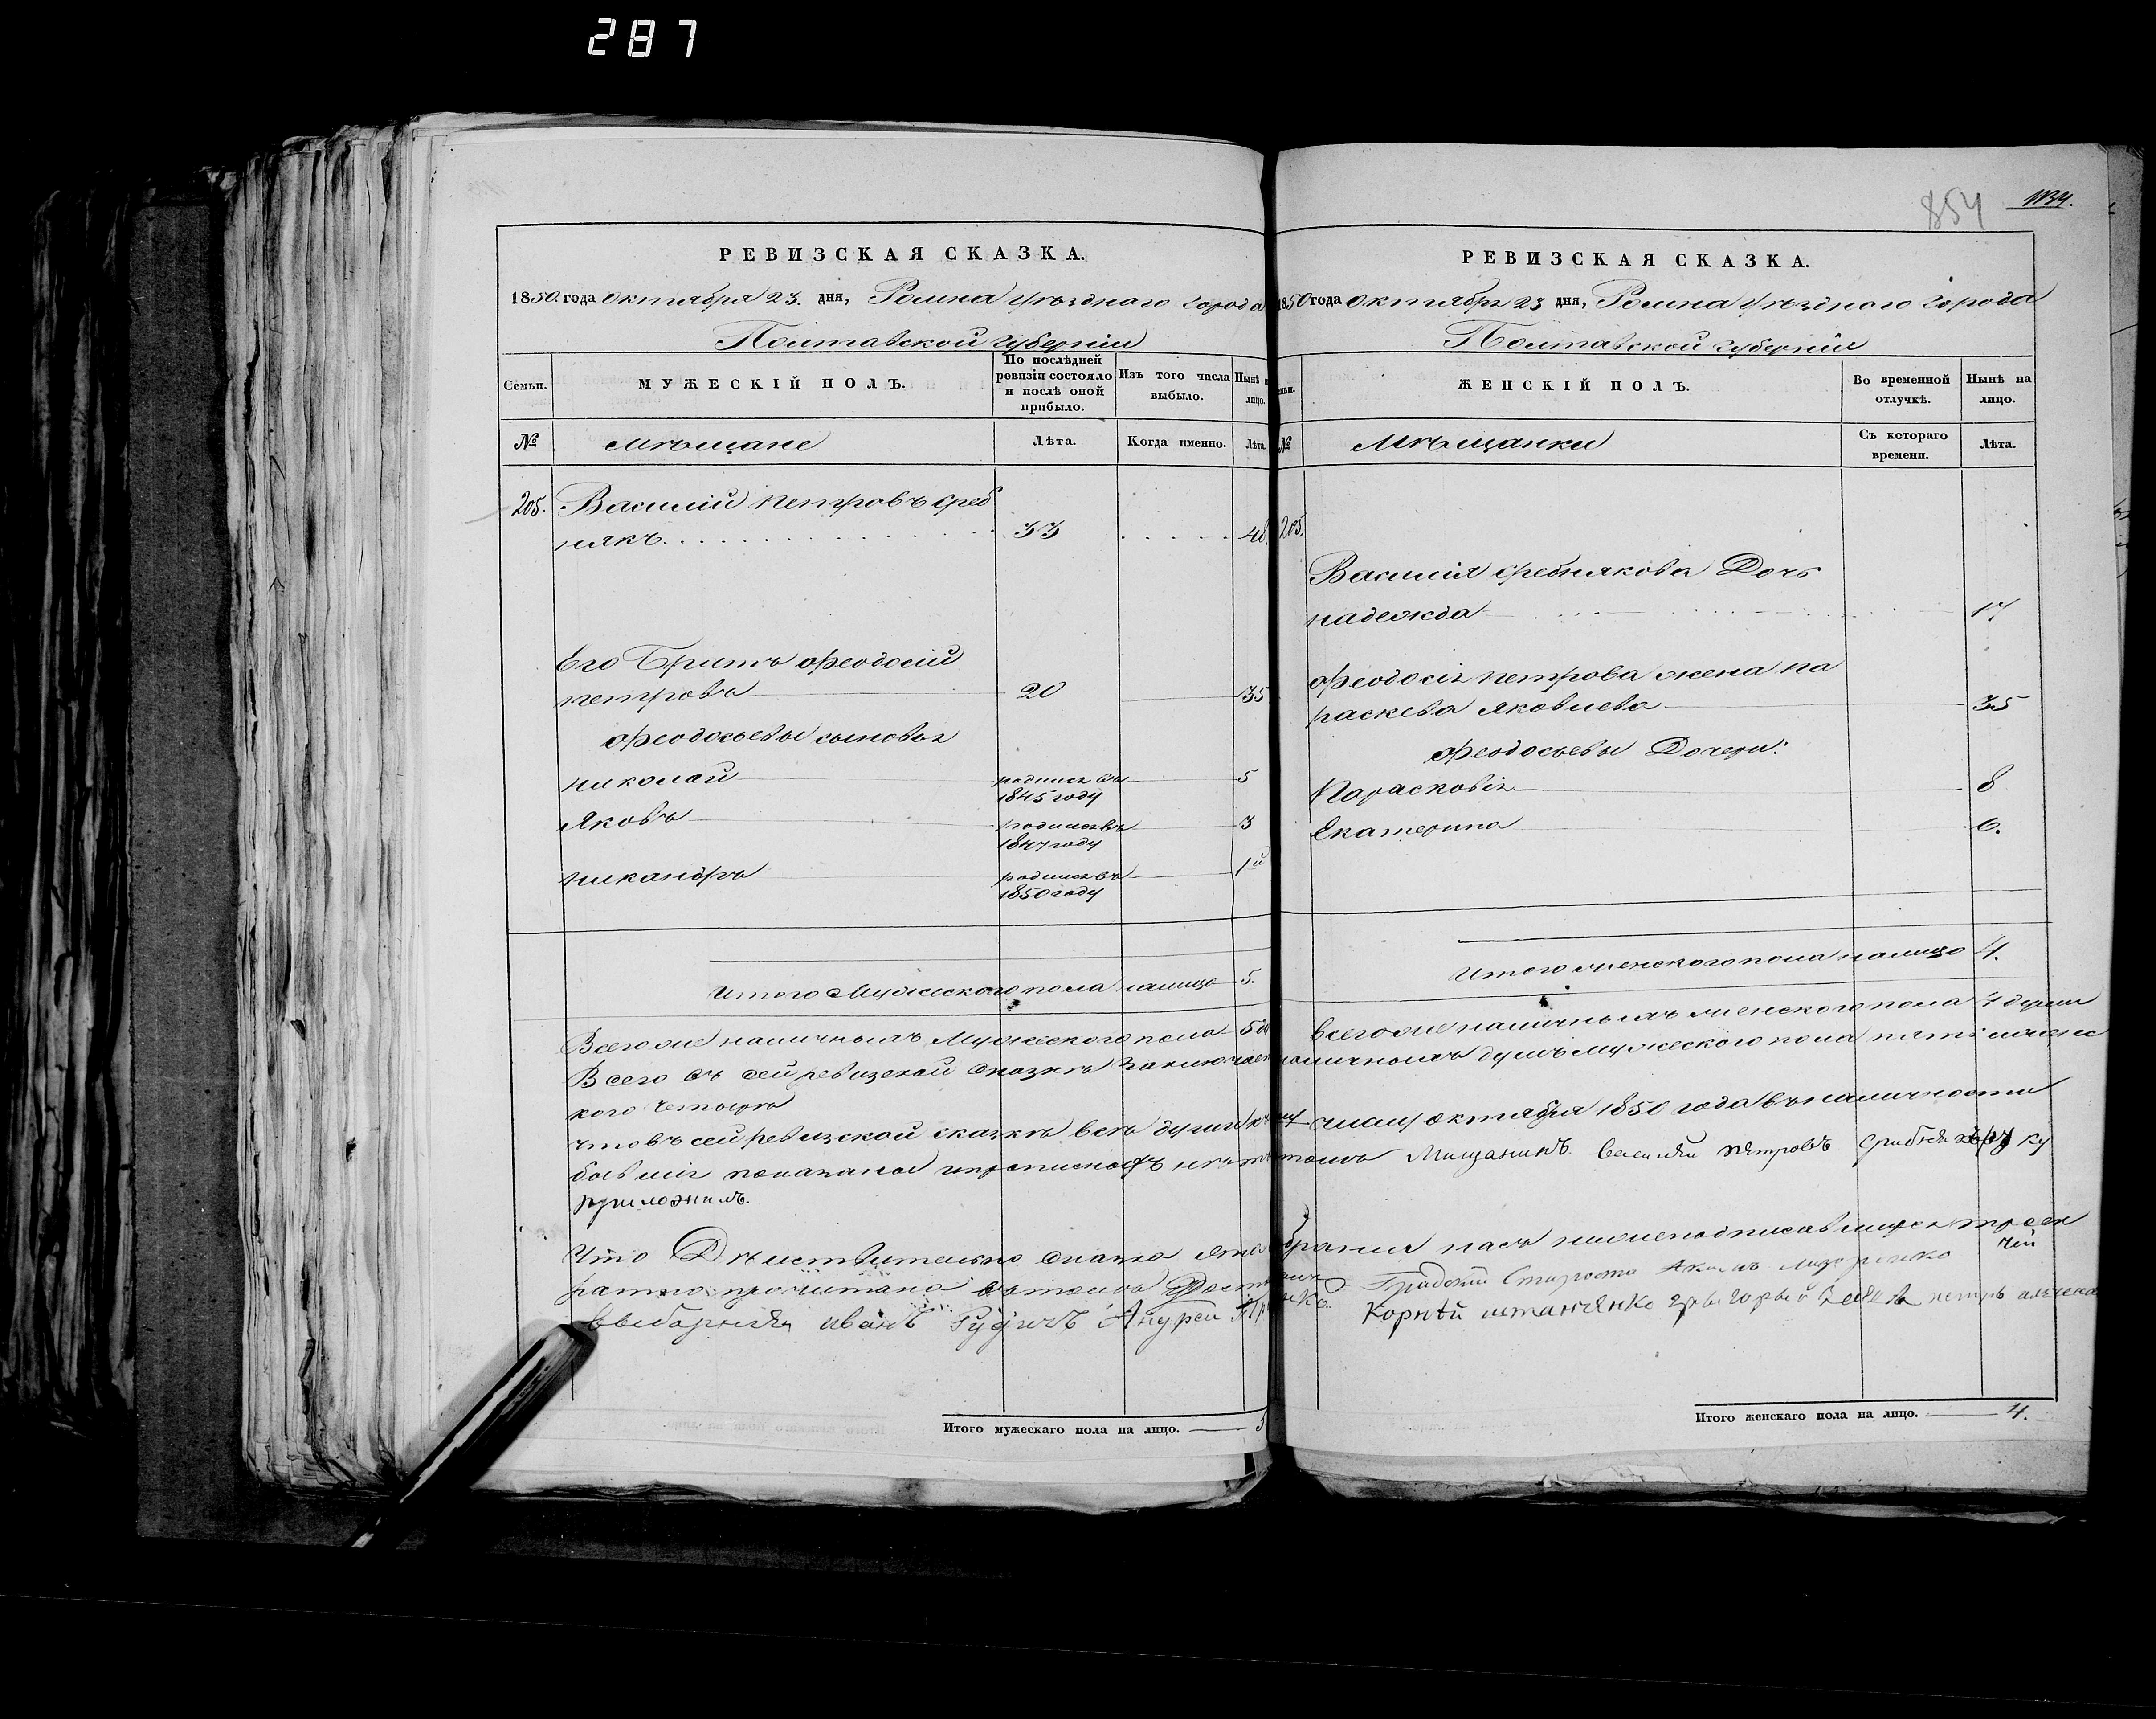 287
РЕВИЗСКАЯ СКАЗКА.
1850. года Октября 23. дня, Ромна Уѣзднаго Города
Полтавской Губерніи
Семьи.
МУЖЕСКІЙ ПОЛЪ.
По послѣдней ревизіи состояло и послѣ оной прибыло.
Изъ того числа выбыло.
Нынѣ
лицо.
№
Мѣщане
Лѣта.
Когда именно.
Лѣта.
205. Василій Петровъ Среб
някъ 33 48.
Его Братъ Феодосій
Петровъ 20 35
Феодосьевы сыновья
Николай родился въ 1845 году 5
Яковъ родился въ 1847 году 3
Никандръ родился въ 1850 году 1й
Итого Мужеского пола налицо 5.
Всего же наличныхъ Мужеского пола 5
Всего въ сей ревизской сказкѣ
кого четыре
что въ сей ревизской сказкѣ всѣ души
бывшіе показаны
приложилъ.
Что Дѣиствительно
прочитано
Выборныя Иванъ Андрей
Итого мужескаго пола на лицо. 5
854
1134.
РЕВИЗСКАЯ СКАЗКА.
1850 года Октября 23 дня, Ромна Уѣзднаго Города
Полтавской Губерніи
ЖЕНСКІЙ ПОЛЪ.
Во временной отлучкѣ.
Нынѣ на лицо.
№
Мѣщанки
Съ котораго времени.
Лѣта.
205.
Василія Сребнякова Дочь
Надежда 17
Феодосія Петрова жена Па
раскева Яковлева 35
Феодосьевы Дочери:
Парасковія 8
Екатерина 6.
Итого женского пола налицо 4.
Всего же наличныхъ женского пола 4 души
наличныхъ душъ мужеского пола пять женс
числу октября 1850 года въ наличности
Мищанинъ Василий Петровъ руку
Градский Староста
Корнѣй
Итого женскаго пола на лицо. 4.